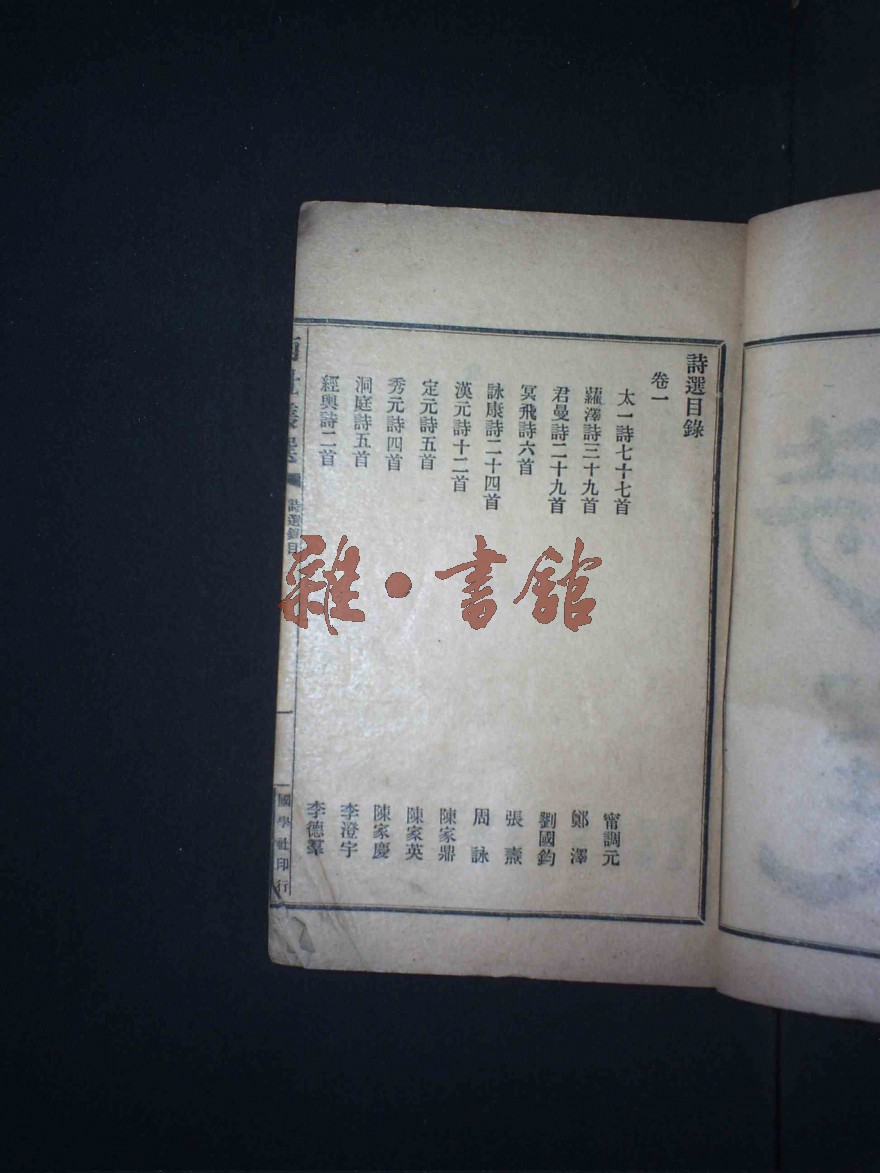 詩選目錄
卷一
太一詩七十七首 甯調元
蘿澤詩三十九首 鄭澤
君曼詩二十九首 劉國鈞
冥飛詩六首 張燾
詠康詩二十四首 周詠
漢元詩十二首 陳家鼎
定元詩五首 陳家英
秀元詩四首 陳家慶
洞庭詩五首 李澄宇
經輿詩二首 李德羣
南社叢選 詩選錄目 一 國學社印行
雜·書館